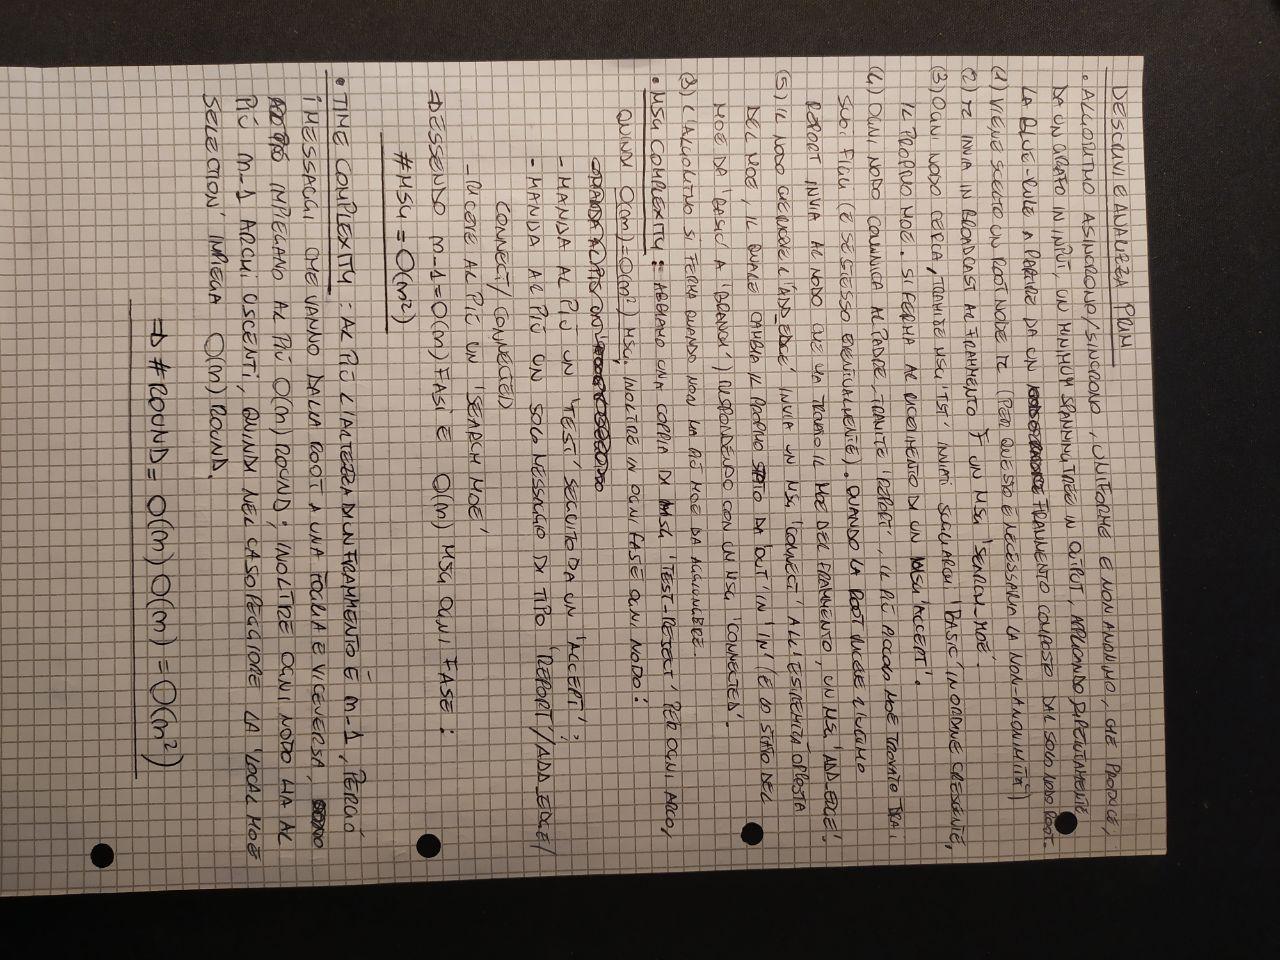 DESCRIVI E ANALIZZA PRIM
• ALGORITMO ASINCRONO/SINCRONO, UNIFORME E NON ANONIMO, CHE PRODUCE,
DA UN GRAFO IN INPUT, UN MINIMUM SPANNING TREE IN OUTPUT, APPLICANDO RIPETUTAMENTE
LA BLUE-RULE A PARTIRE DA UN FRAMMENTO COMPOSTO DAL SOLO NODO ROOT.
(1) VIENE SCELTO UN ROOT NODE R (PER QUESTO È NECESSARIA LA NON-ANONIMITÀ)
(2) R INVIA IN BROADCAST AL FRAMMENTO F UN MSG 'SEARCH-MOE'.
(3) OGNI NODO CERCA, TRAMITE MSG 'TEST' INVIATI SUGLI ARCHI 'BASIC' IN ORDINE CRESCENTE,
IL PROPRIO MOE. SI FERMA AL RICEVIMENTO DI UN MSG 'ACCEPT'.
(4) OGNI NODO COMUNICA AL PADRE, TRAMITE 'REPORT', IL PIÙ PICCOLO MOE TROVATO TRA I
SUOI FIGLI (E SE STESSO EVENTUALMENTE). QUANDO LA ROOT RICEVE L'ULTIMO
REPORT INVIA AL NODO CHE HA TROVATO IL MOE DEL FRAMMENTO, UN MSG 'ADD_EDGE'.
(5) IL NODO CHE RICEVE L'ADD_EDGE' INVIA UN MSG 'CONNECT' ALL'ESTREMITÀ OPPOSTA
DEL MOE, IL QUALE CAMBIA IL PROPRIO STATO DA 'OUT' IN 'IN' (E LO STATO DEL
MOE DA 'BASIC' A 'BRANCH') RISPONDENDO CON UN MSG 'CONNECTED'.
L'ALGORITMO SI FERMA QUANDO NON HA PIÙ MOE DA AGGIUNGERE.
• MSG COMPLEXITY: ABBIAMO UNA COPPIA DI MSG 'TEST-REJECT' PER OGNI ARCO,
QUINDI O(m)=O(n²) MSG. INOLTRE IN OGNI FASE OGNI NODO:
- MANDA AL PIÙ UN 'TEST' SEGUITO DA UN 'ACCEPT';
- MANDA AL PIÙ UN SOLO MESSAGGIO DI TIPO 'REPORT'/ADD_EDGE/
CONNECT/CONNECTED
- RICEVE AL PIÙ UN 'SEARCH MOE'
⇒ ESSENDO n-1=O(n) FASI E O(n) MSG OGNI FASE:
#MSG = O(n²)
• TIME COMPLEXITY: AL PIÙ L'ALTEZZA DI UN FRAMMENTO È n-1, PERCIÒ
I MESSAGGI CHE VANNO DALLA ROOT A UNA FOGLIA E VICEVERSA,
IMPIEGANO AL PIÙ O(n) ROUND; INOLTRE OGNI NODO HA AL
PIÙ n-1 ARCHI USCENTI, QUINDI NEL CASO PEGGIORE LA 'LOCAL MOE
SELECTION' IMPIEGA O(n) ROUND.
⇒ #ROUND = O(n) O(n) = O(n²)